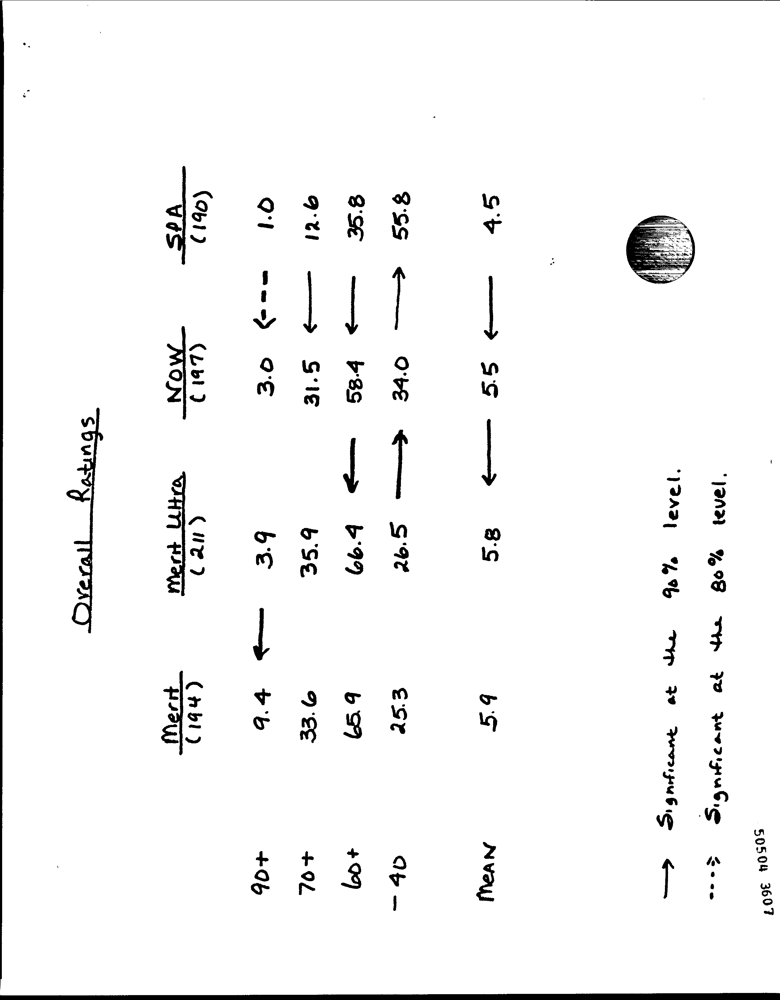 Overall Ratings
Merit Merit Ultra NOW SPA
(194) (211) (197) (190)
90+ 9.4 ← 3.9 3.0 <--- 1.0
70+ 33.6 35.9 31.5 ← 12.6
60+ 65.9 66.4 ← 58.4 ← 35.8
-40 25.3 26.5 → 34.0 → 55.8
MEAN 5.9 5.8 ← 5.5 ← 4.5
→ Significant at the 90% level.
---> Significant at the 80% level.
50504 3607